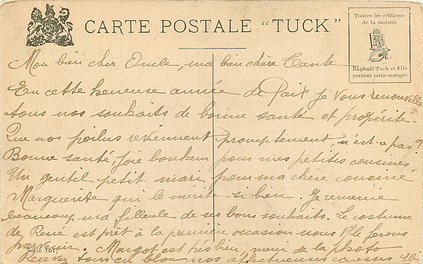 CARTE POSTALE "TUCK"
Toutes les éditions
de la maison
Raphaël Tuck et Fils
portent cette marque
Mon bien cher Oncle, ma bien chère Tante
En cette heureuse année de Paix je vous renouvelle
tous nos souhaits de bonne santé et propérité.
Que nos poilus reviennent promptement, n'est-ce pas ?
Bonne santé, joie bonheur pour mes petites cousines
Un gentil petit mari pour ma chère cousine
Marguerite qui le mérite si bien. Je remercie
beaucoup ma filleule de ses bons souhaits. Le costume
de René est prêt à la première occasion nous le ferons
parvenir. Margot est très bien sur la photo
Recevez tous en bloc nos affectueuses caresses